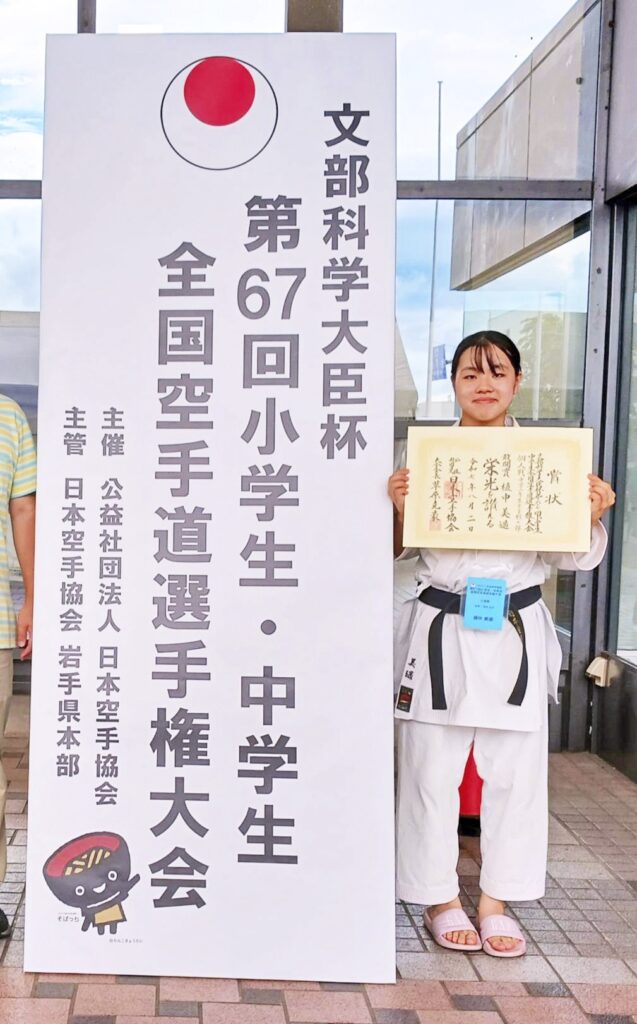 文部科学大臣杯
第67回小学生・中学生
全国空手道選手権大会
主催 公益社団法人 日本空手協会
主管 日本空手協会 岩手県本部
そばっち
賞状
栄光を讃える
令和七年八月二日
日本空手協会